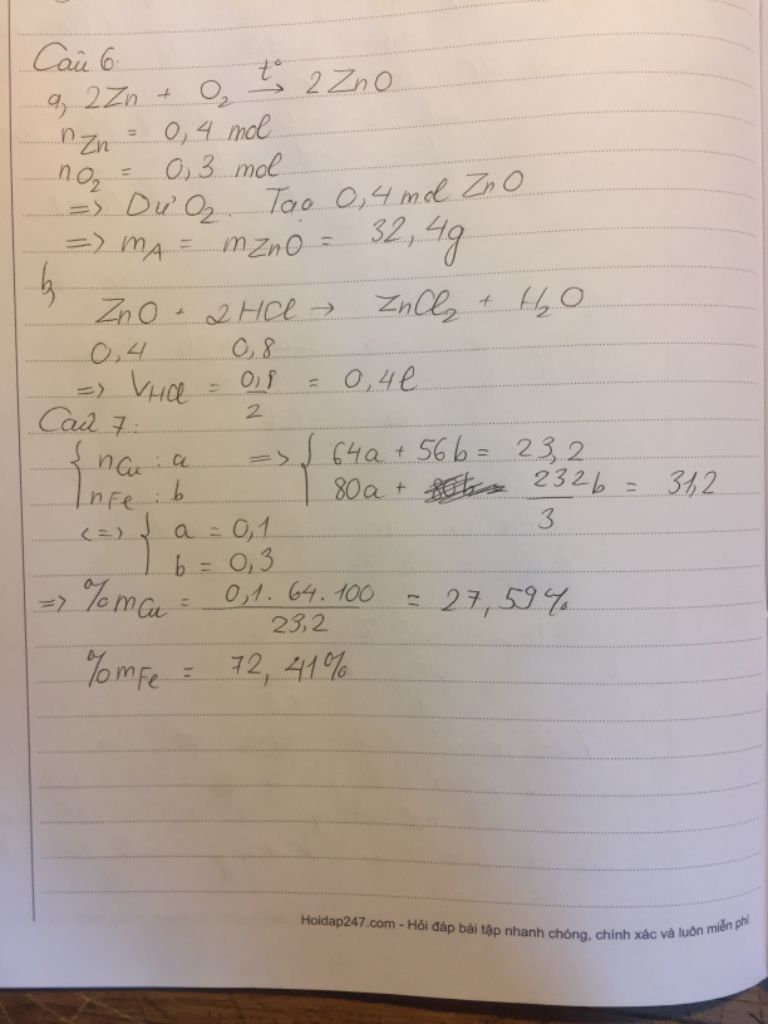 Câu 6:
a, 2Zn + O₂ →(t°) 2ZnO
nZn = 0,4 mol
nO₂ = 0,3 mol
=> Dư O₂. Tạo 0,4 mol ZnO
=> mA = mZnO = 32,4g
b,
ZnO + 2HCl → ZnCl₂ + H₂O
0,4 0,8
=> VHCl = 0,8/2 = 0,4l
Câu 7:
{ nCu : a => { 64a + 56b = 23,2
nFe : b 80a + 232/3 b = 31,2
<=> { a = 0,1
b = 0,3
=> %mCu = 0,1.64.100/23,2 = 27,59%
%mFe = 72,41%
Hoidap247.com - Hỏi đáp bài tập nhanh chóng, chính xác và luôn miễn phí